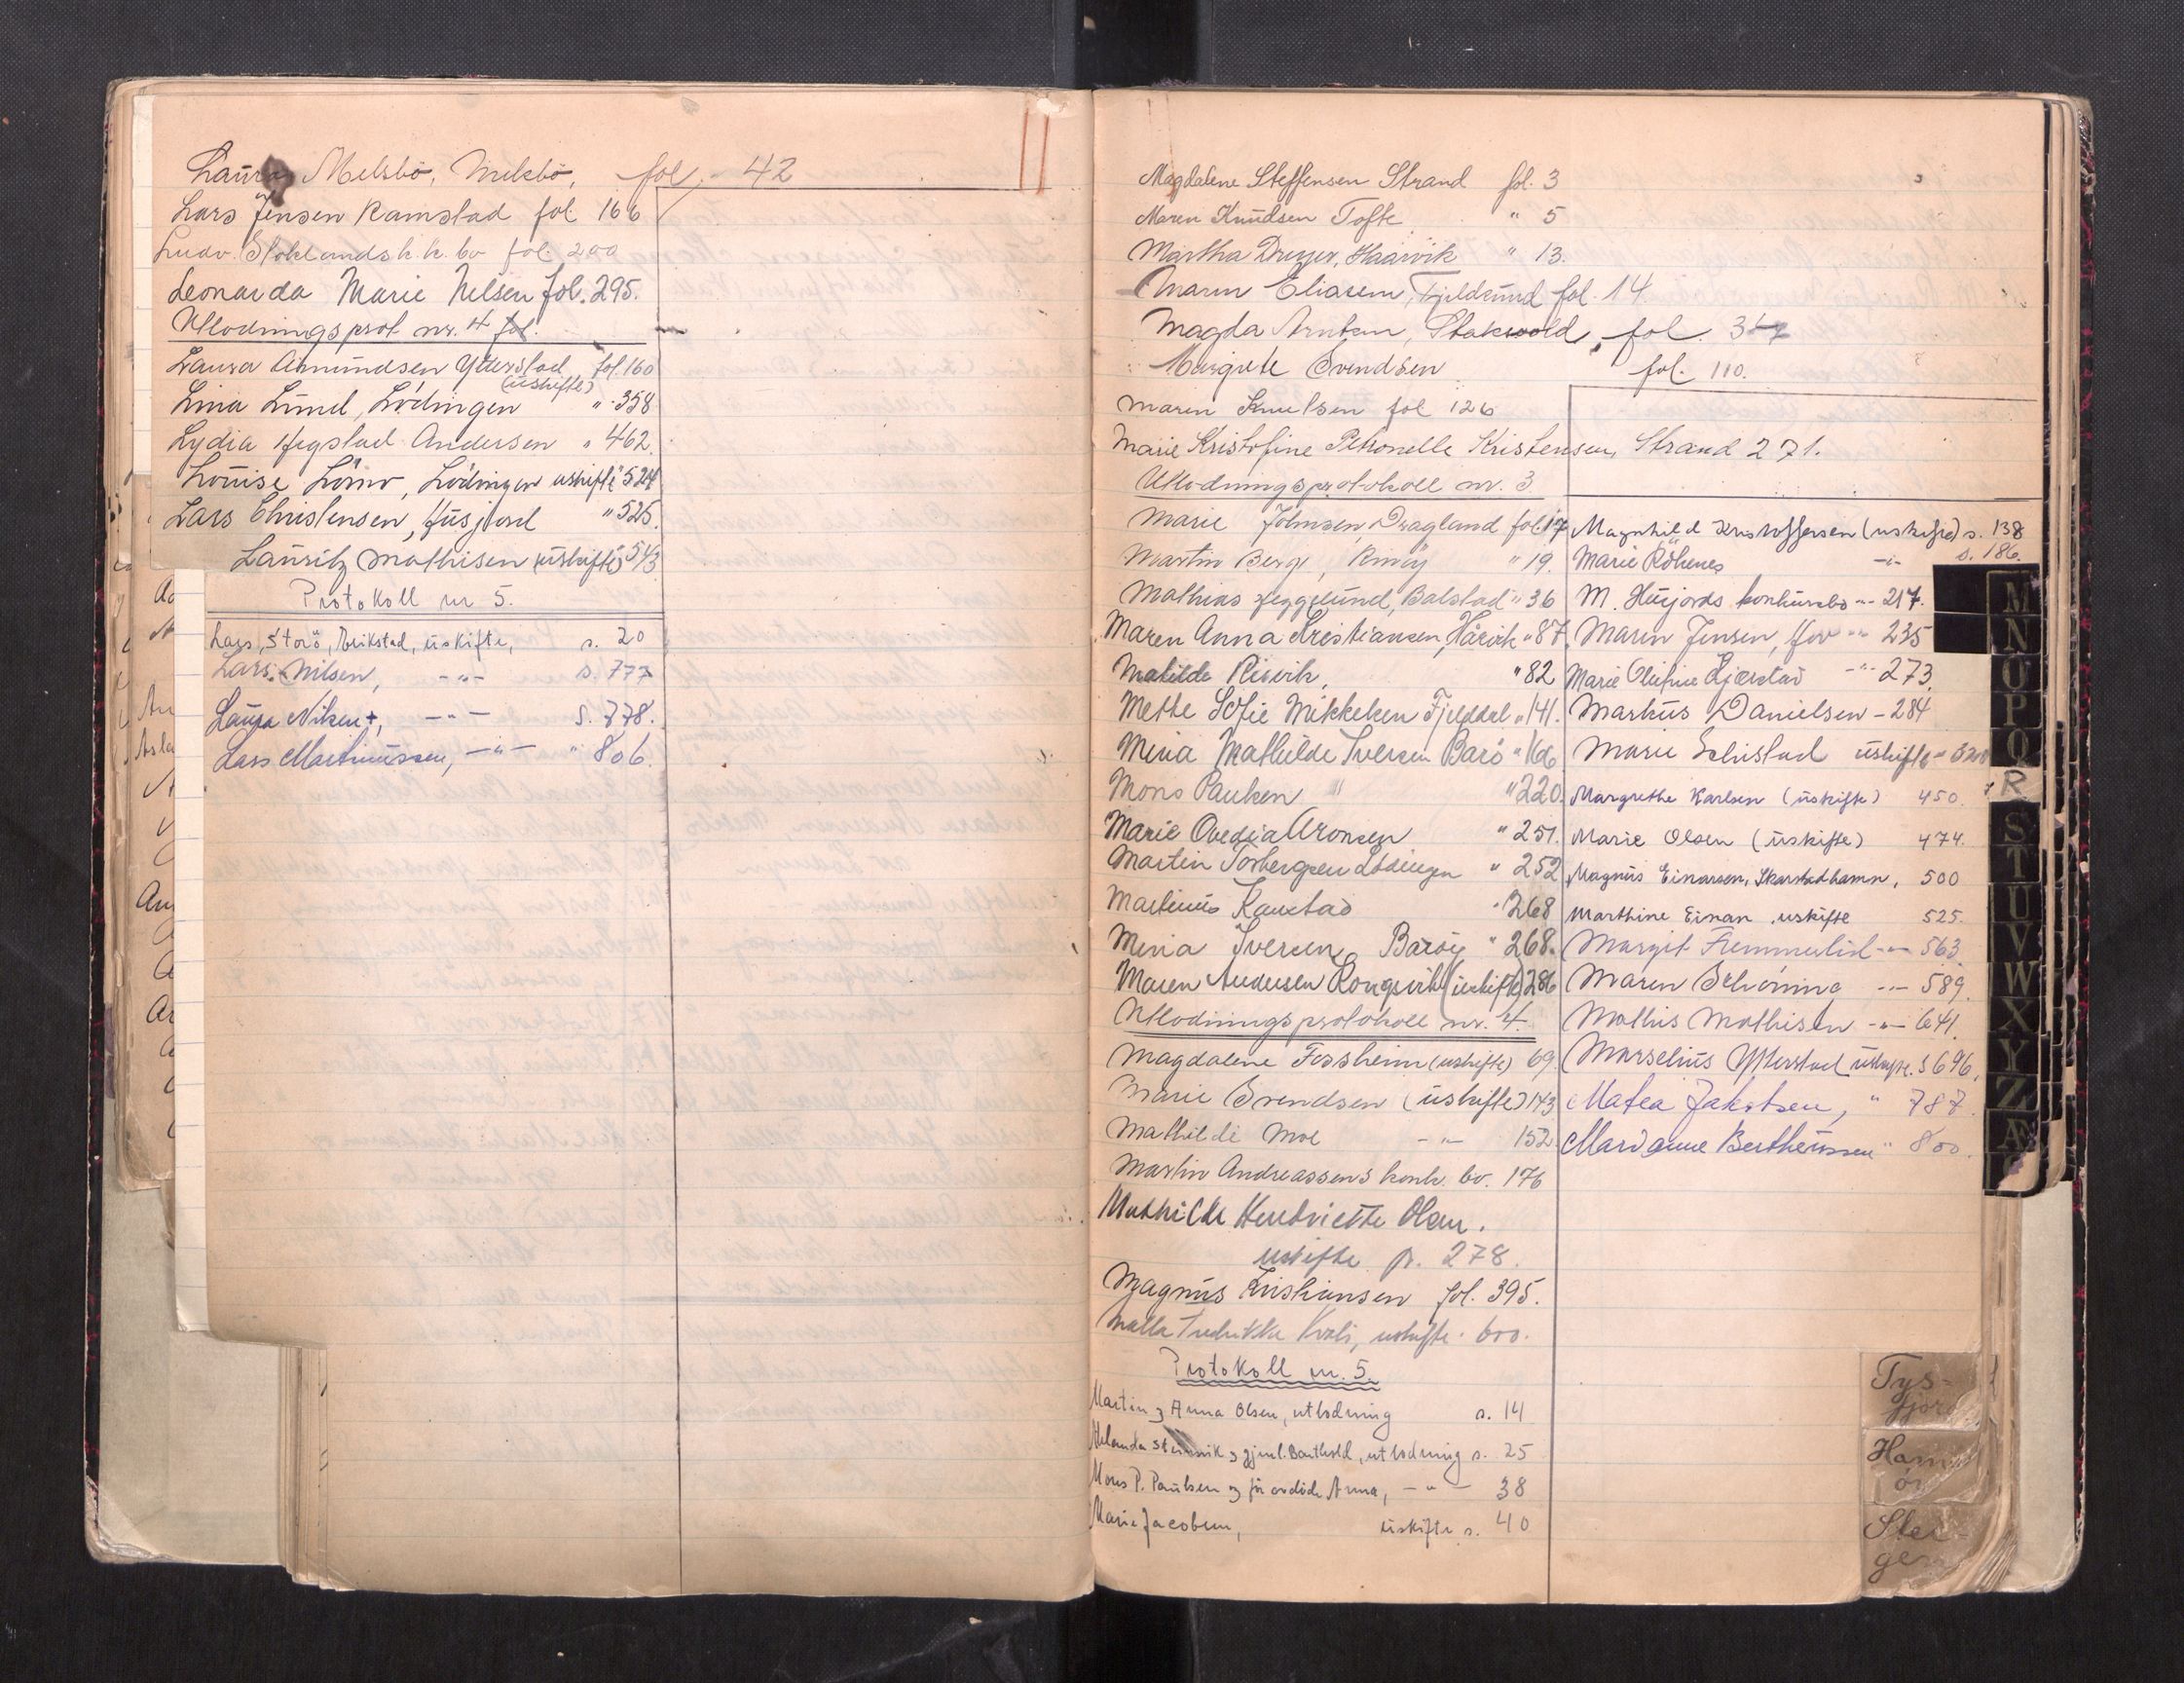 Laura Melsbö, Melsbö, fol. 42
Lars Jensen Ramstad fol. 166
Ludv. Stoklands k.k. bo fol. 200
Leonarda Marie Nelsen fol. 295.
Utlodningsprot nr. 4 fol.
Laura Amundsen Ytterstad fol. 160
(uskifte)
Lina Lund, Lödingen " 358
Lydia Hegstad Andersen " 462.
Louise Lömo, Lödingen uskifte " 524
Lars Christensen, Husjord " 526.
Lauritz Mathisen (uskifte) 543
Protokoll nr 5.
Lars Storö, Breikstad, uskifte, s. 20
Lars Nilsen, -"- s. 777
Laura Nilsen +, -"- s. 778.
Lars Martinussen, -"- " 806.
Magdalene Steffensen Strand fol. 3
Maren Knudsen Tofte " 5
Martha Dreyer, Haarvik " 13.
Maren Eliasen, Fjeldsund fol. 14.
Magda Arntsen, Stokvold, fol. 37
Margrete Svendsen fol. 110.
Maren Knudsen fol 126
Marie Kristofine Petronelle Kristensen, Strand 271.
Utlodningsprotokoll nr. 3
Marie Johnsen, Dragland fol. 17
Martin Berg, Rinöy " 19.
Mathias Jeggelund, Balstad " 36
Maren Anna Kristiansen, Hårvik " 87.
Matilde Risvik, " 82
Methe Sofie Mikkelsen Fjelddal " 141.
Mina Mathilde Iversen Barö " 166
Mons Paulsen " 220
Marie Ovedia Aronsen " 251.
Martin Torbergsen Lödingen " 252
Martinus Kanstad " 268
Mina Iversen, Baröy " 268.
Maren Andersen Kongsvik (uskifte) 286
Utlodningsprotokoll nr. 4.
Magdalene Fossheim (uskifte) 69.
Marie Svendsen (uskifte) 143
Mathilde Moe -"- 152
Martin Andreassens konk. bo. 176
Mathilde Hendriette Olsen.
uskifte p. 278.
Magnus Kristiansen fol. 395.
Malla Fredrikke Kvali, uskifte. 600.
Protokoll nr. 5.
Martin og Anna Olsen, utlodning s. 14
Melanda Steinvik og gjenl. Barthold, utlodning s. 25
Mons P. Paulsen og før avdöde Anna, -"- 38
Marie Jacobsen, uskifte s. 40
Magnhild Kristoffersen (uskifte) s. 138
Marie Röhenes -"- s. 186.
M. Husjords konkursbo -"- 217.
Maren Jensen, Hov -"- 235
Marie Olufine Kjærstad -"- 273.
Markus Danielsen - 284
Marie Schistad uskifte - 320
Margrethe Karlsen (uskifte) 450.
Marie Olsen (uskifte) 474.
Magnus Einarsen, Skarstadhamn, 500
Marthine Einan, uskifte 525.
Margit Fremmerlid -"- 563
Maren Schöning -"- 589.
Mathis Mathisen -"- 641.
Marselius Ytterstad uskifte. s 696.
Matea Jakobsen, " 787.
Marianne Bertheussen " 800.
M
N
O
P
Q
R
S
T
U
V
W
X
Y
Z
Æ
Tys-
fjord
Ham
ör
Stei-
gen